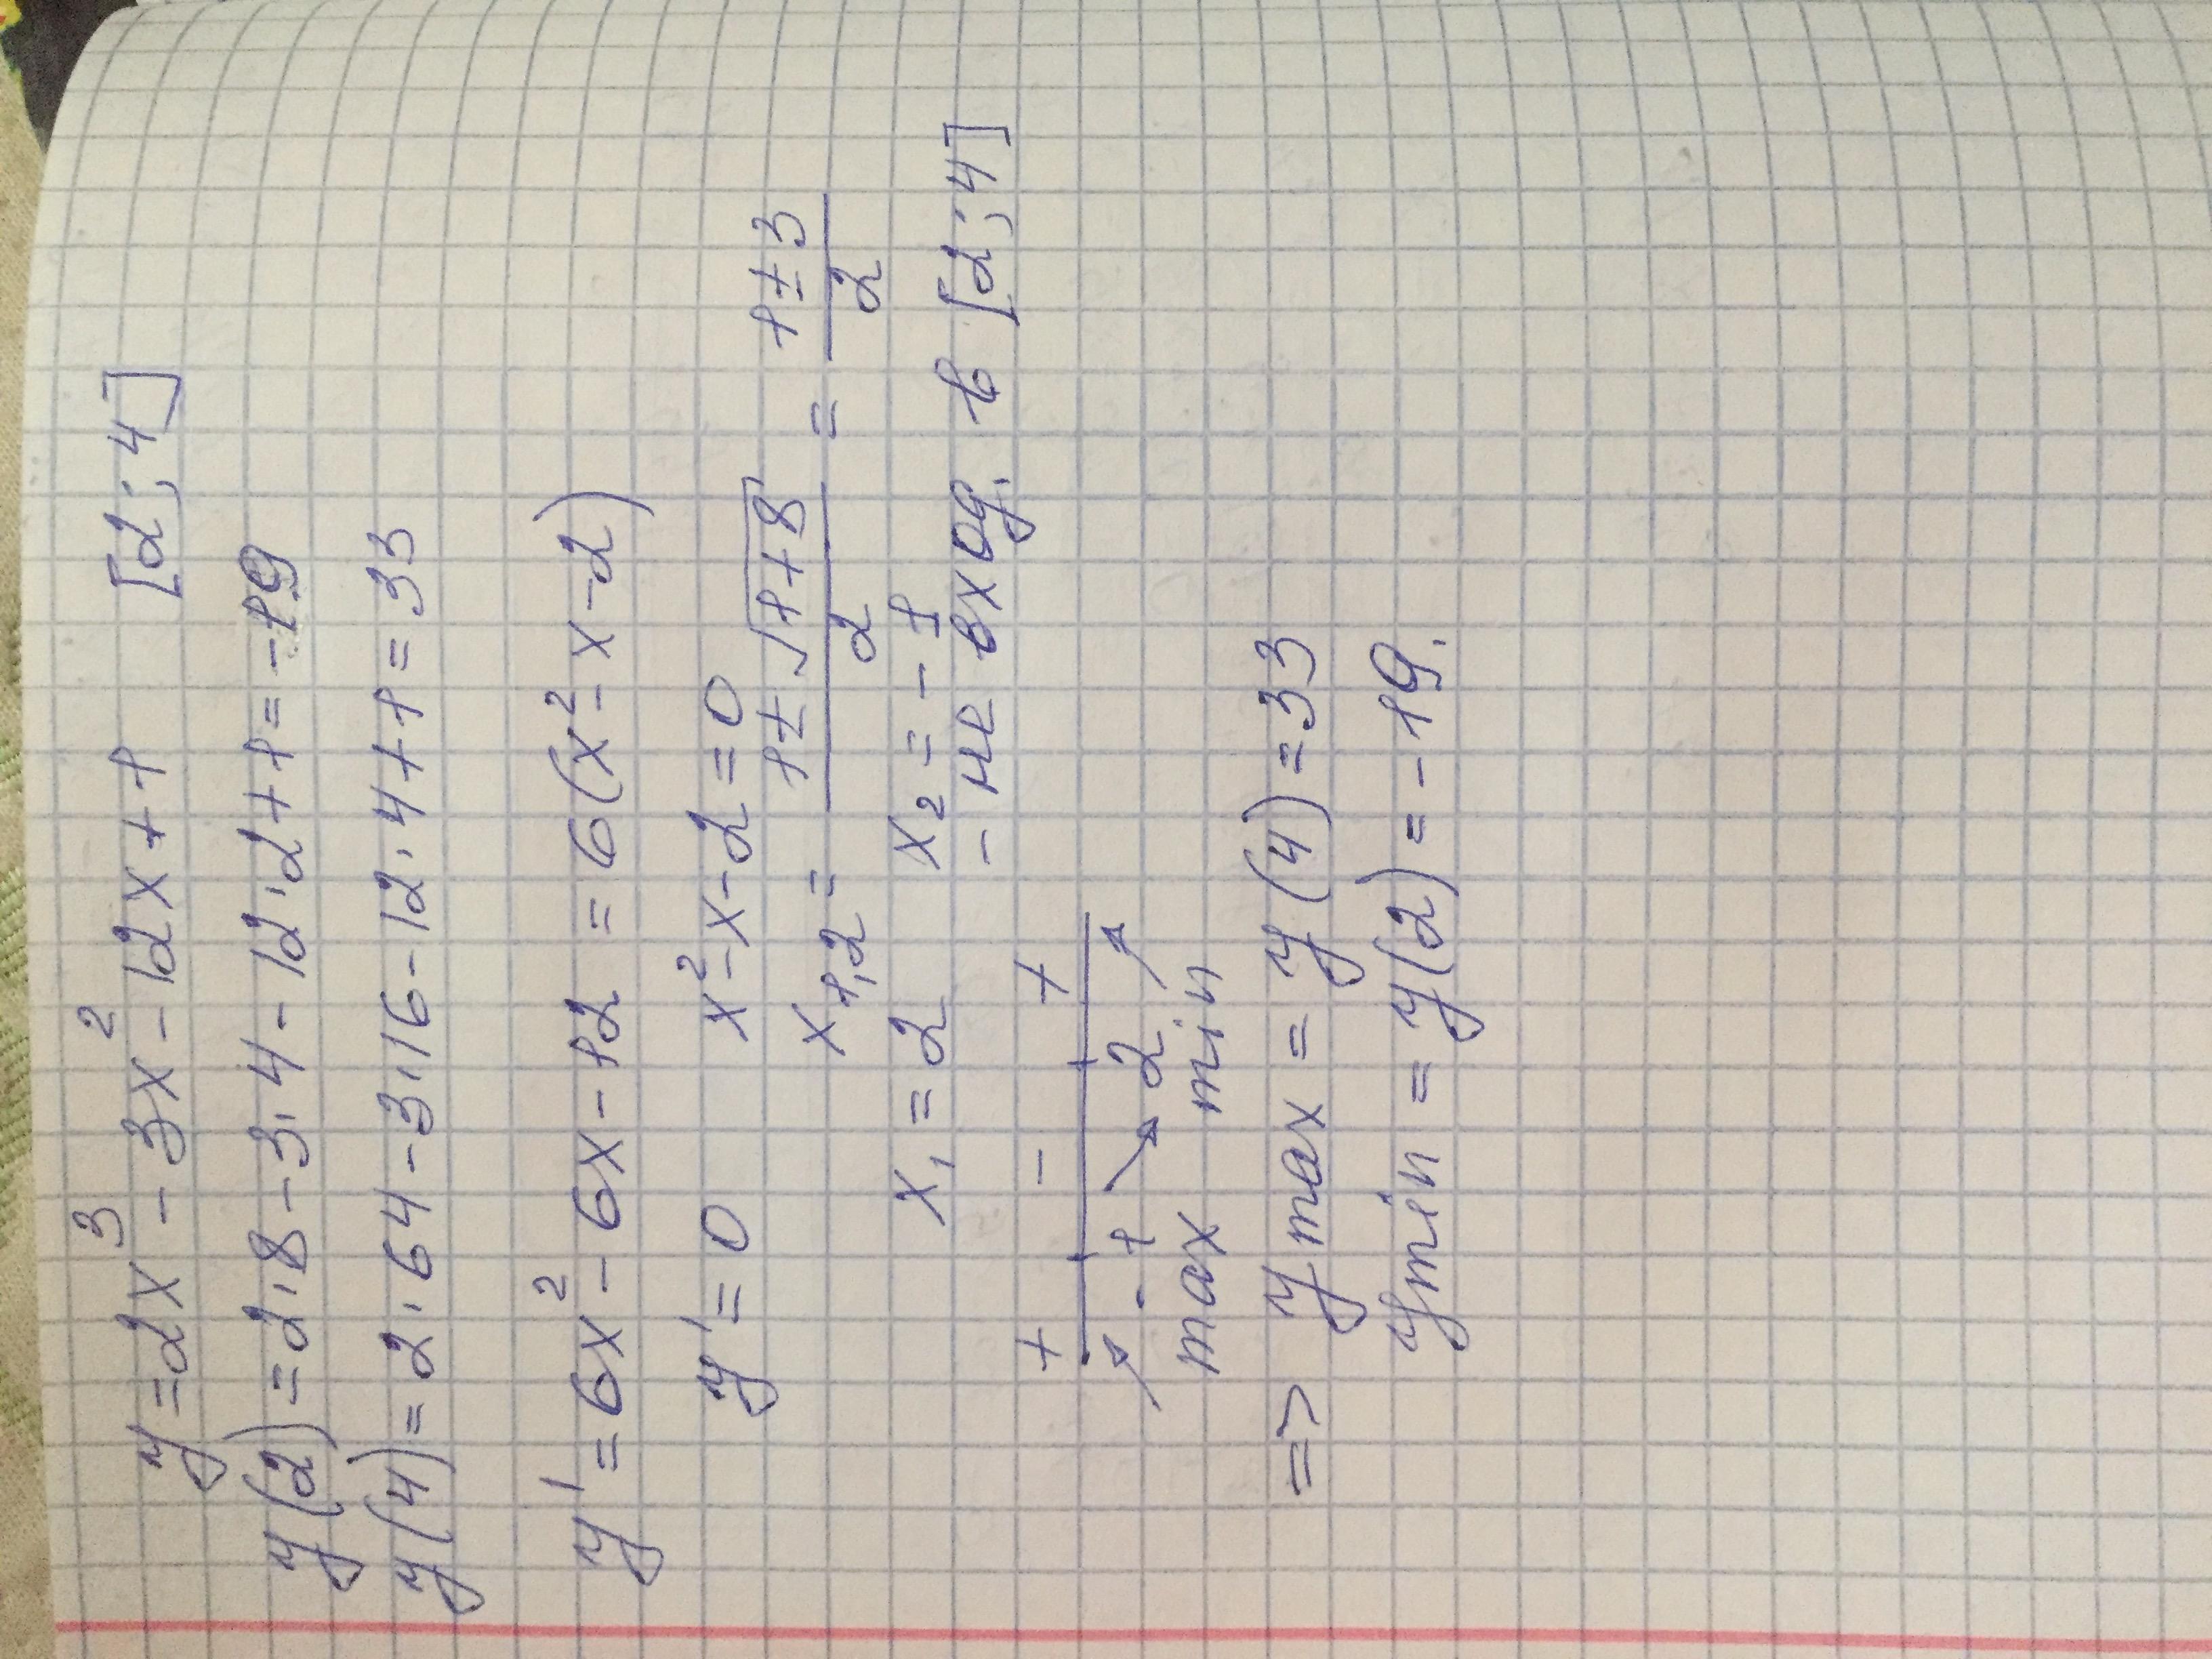 y = 2x³ - 3x² - 12x + 1 [2; 4]
y(2) = 2·8 - 3·4 - 12·2 + 1 = -19
y(4) = 2·64 - 3·16 - 12·4 + 1 = 33
y' = 6x² - 6x - 12 = 6(x² - x - 2)
y' = 0 x² - x - 2 = 0
x₁,₂ = (1 ± √(1+8))/2 = (1 ± 3)/2
x₁ = 2 x₂ = -1
- не вход. в [2; 4]
+ - +
-1 2
max min
=> y max = y(4) = 33
y min = y(2) = -19.